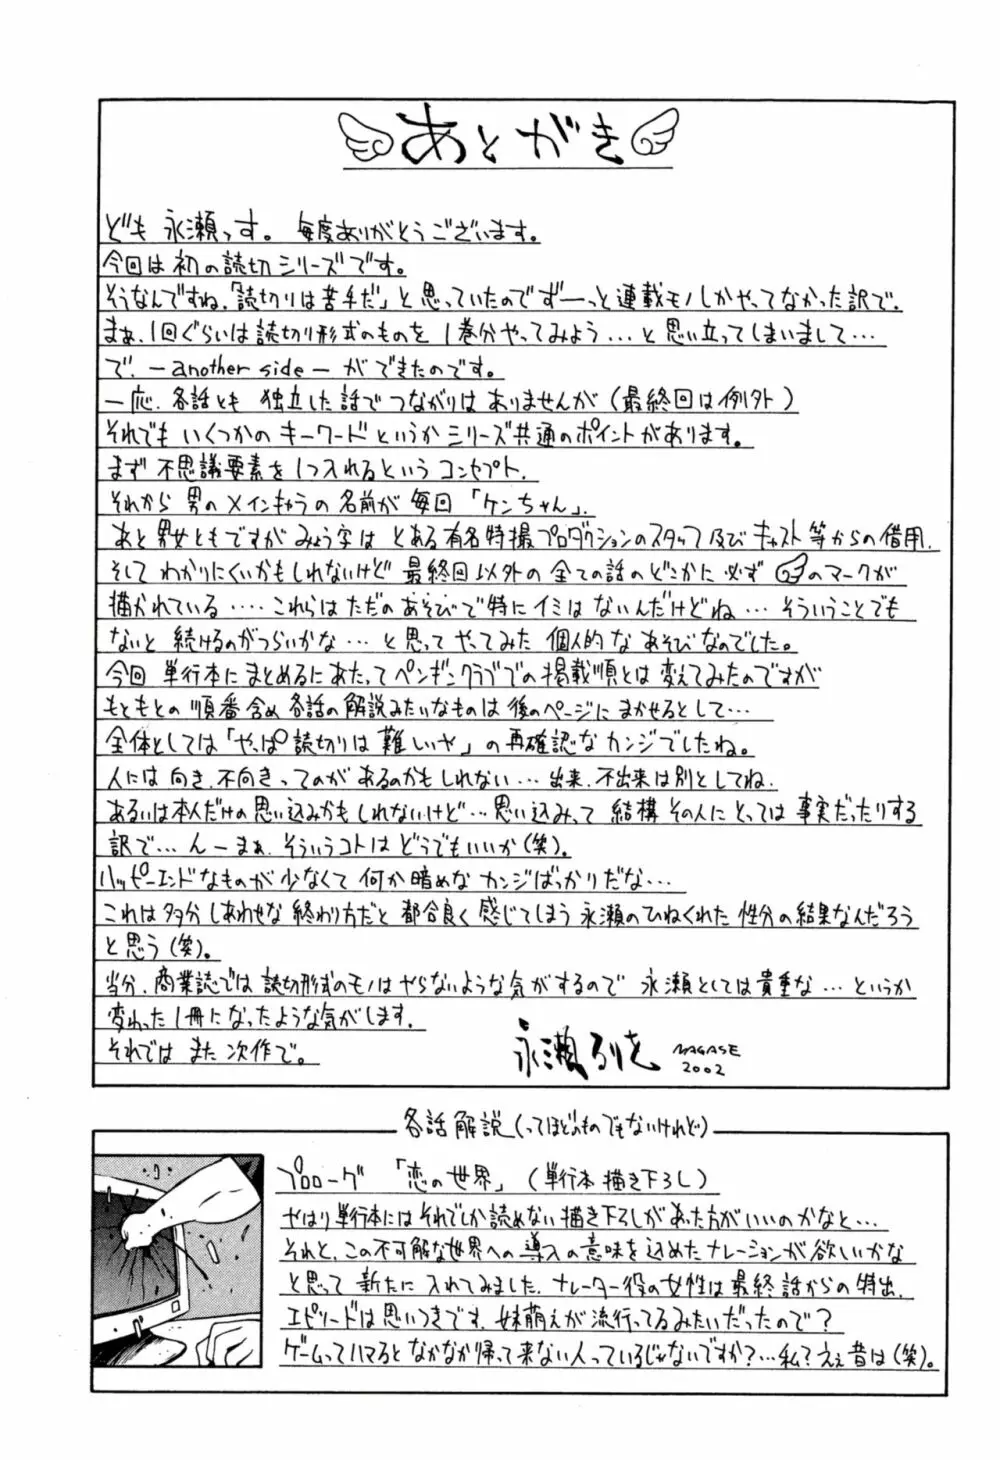 あとがき
ども 永瀬っす。毎度ありがとうございます。
今回は初の読切シリーズです。
そうなんですね、「読切りは苦手だ」と思っていたのでずーっと連載モノしかやってなかった訳で、
まぁ、1回ぐらいは読切り形式のものを 1巻分やってみよう…と思い立ってしまいまして…
で、―another side―ができたのです。
一応、各話とも 独立した話でつながりはありませんが(最終回は例外)
それでも いくつかのキーワードというかシリーズ共通のポイントがあります。
まず 不思議要素を1つ入れるというコンセプト、
それから 男のメインキャラの名前が 毎回「ケンちゃん」、
あと男女ともですがみょう字は とある有名特撮プロダクションのスタッフ及びキャスト等からの借用、
そして わかりにくいかもしれないけど 最終回以外の全ての話のどこかに必ず のマークが
描かれている‥‥これらはただのあそびで特にイミはないんだけどね…そういうことでも
ないと 続けるのがつらいかな…と思ってやってみた 個人的な あそびなのでした。
今回 単行本にまとめるにあたってペンギンクラブでの掲載順とは変えてみたのですが
もともとの順番含め各話の解説みたいなものは後のページにまかせるとして…
全体としては「やっぱ読切りは難しいや」の再確認なカンジでしたね。
人には向き、不向きってのがあるのかもしれない…出来、不出来は別としてね、
あるいは本人だけの思い込みかもしれないけど…思い込みって 結構その人にとっては事実だったりする
訳で…んーまぁ、そういうコトはどうでもいいか(笑)。
ハッピーエンドなものが少なくて 何か暗めなカンジばっかりだな…
これは多分しあわせな終わり方だと 都合良く感じてしまう永瀬のひねくれた性分の結果なんだろう
と思う(笑)。
当分、商業誌では読切形式のモノはやらないような気がするので 永瀬としては貴重な…というか
変わった1冊になったような気がします。
それでは また 次作で。
永瀬るりを NAGASE
2002
各話解説(ってほどのものでもないけれど)
プロローグ 「恋の世界」(単行本描き下ろし)
やはり単行本にはそれでしか読めない描き下ろしがあった方がいいのかなと…
それと、この不可解な世界への導入の意味を込めたナレーションが欲しいかな
と思って 新たに入れてみました。ナレーター役の女性は最終話からの特出、
エピソードは思いつきです、妹萌えが流行ってるみたいだったので?
ゲームってハマるとなかなか帰って来ない人っているじゃないですか?…私?えぇ昔は(笑)。